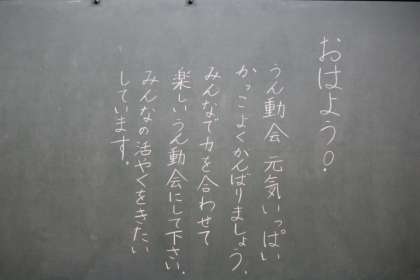 おはよう○.
うん動会 元気いっぱい
かっこよくがんばりましょう.
みんなで力を合わせて
楽しいうん動会にして下さい.
みんなの活やくをきたい
しています.